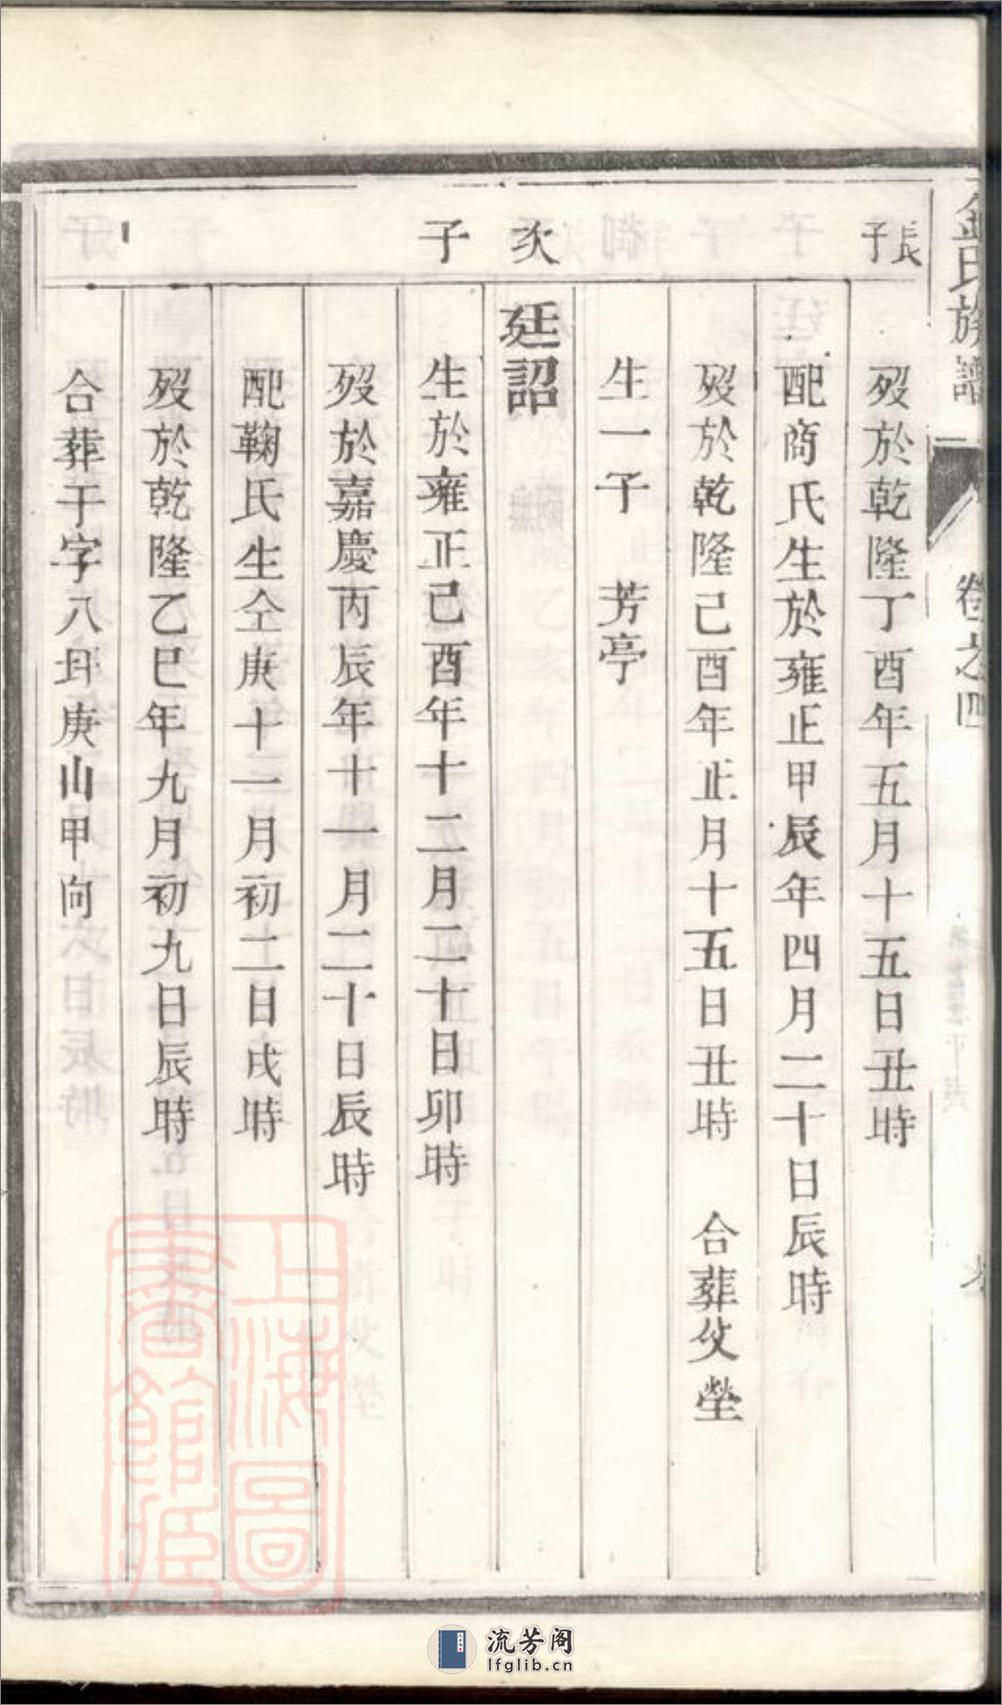 金氏族譜
卷之四
長子
歿於乾隆丁酉年五月十五日丑時
配商氏生於雍正甲辰年四月二十日辰時
歿於乾隆己酉年正月十五日丑時 合葬父塋
生一子 芳亭
次子
廷詔
生於雍正己酉年十二月二十日卯時
歿於嘉慶丙辰年十一月二十日辰時
配鞠氏生仝庚十一月初二日戌時
歿於乾隆乙巳年九月初九日辰時
合葬于字八庚山甲向
上海圖書館藏
流芳阁
lfglib.cn